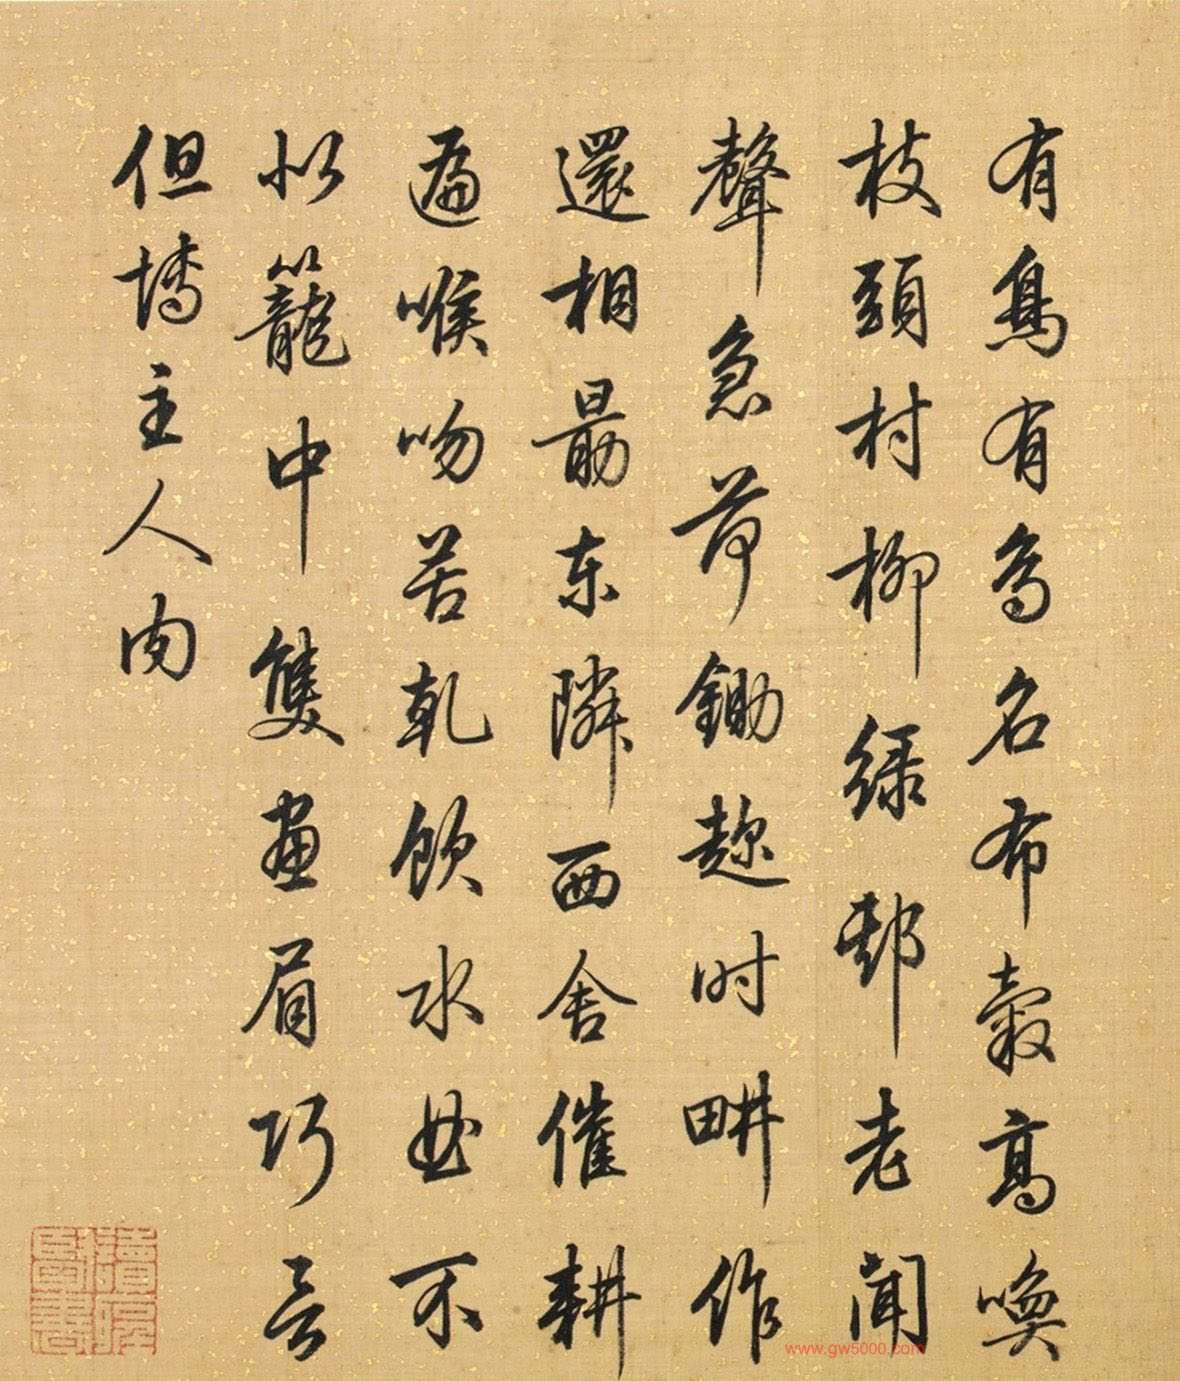 有鳥有鳥名布穀高喚
枝頭村柳綠老聞
聲急荷鋤趂时畊作
還相勗东隣西舍催耕
遍喉吻苦乾飲水不
似籠中雙畫眉巧言
但博主人肉
www.gw5000.com